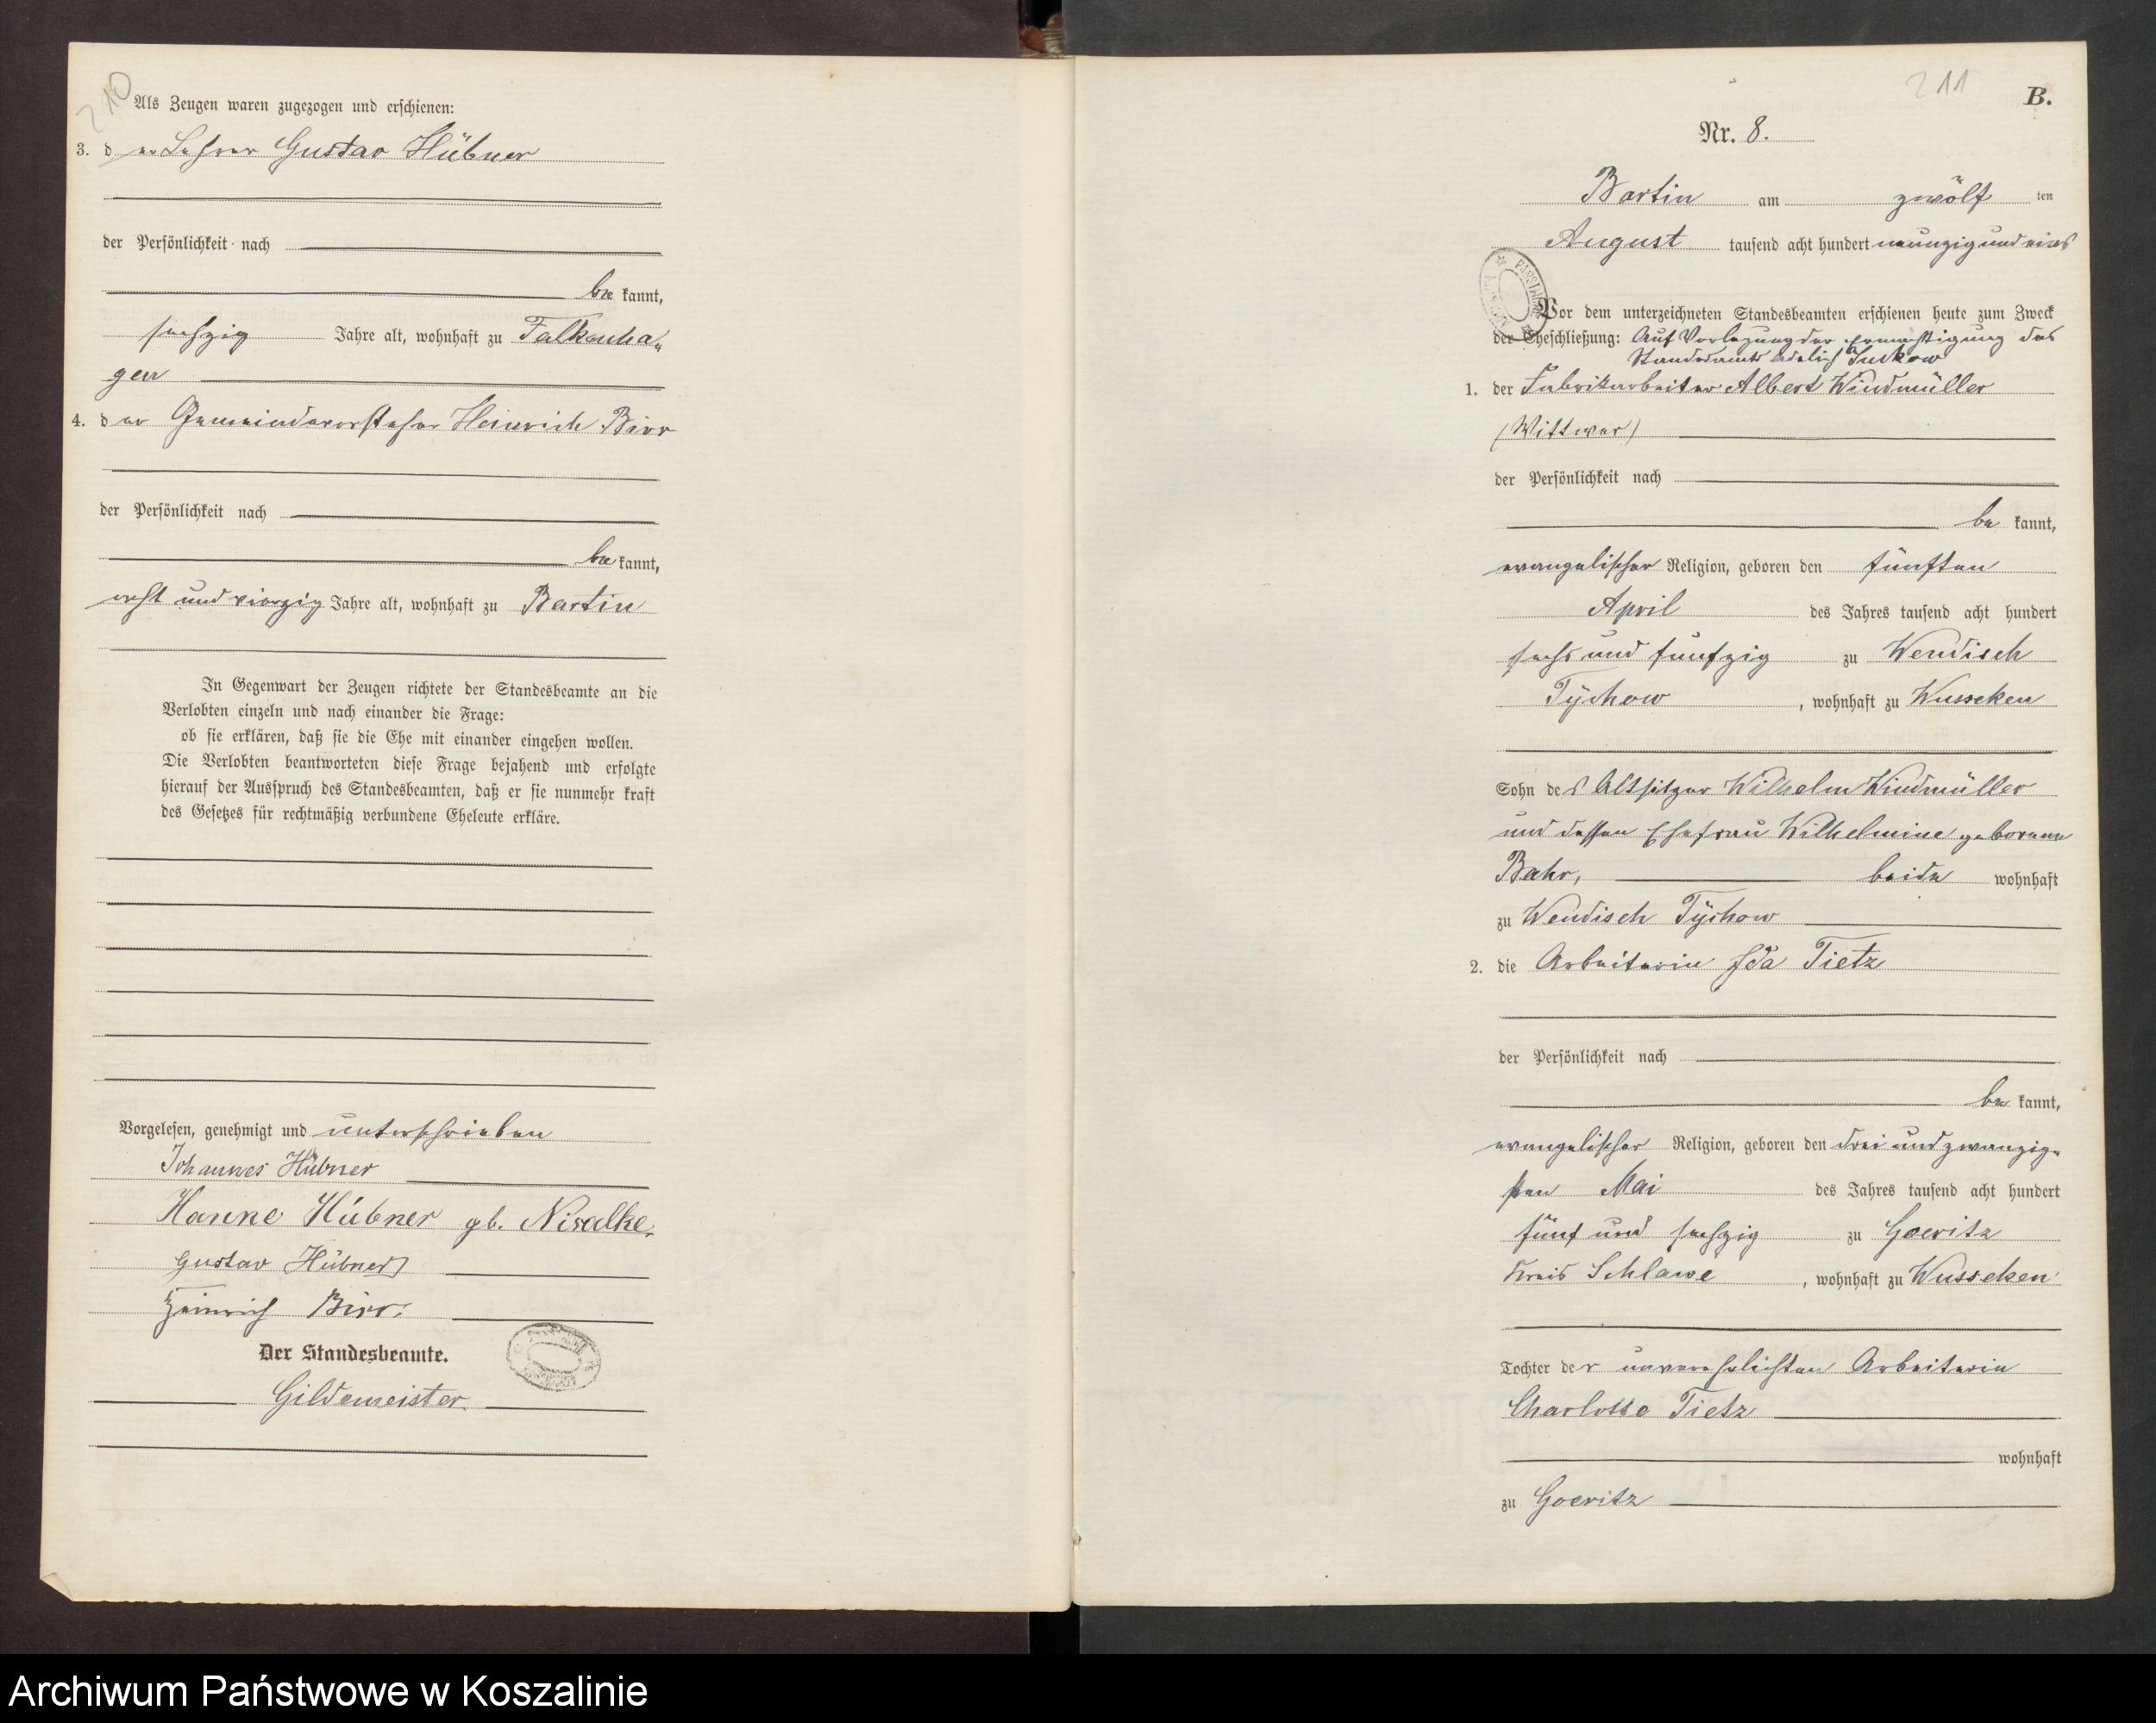 210
Als Zeugen waren zugezogen und erschienen:
3. der Lehrer Gustav Hübner
der Persönlichkeit nach
be kannt,
sechzig Jahre alt, wohnhaft zu Falkenha-
gen
4. der Gemeindevorsteher Heinrich Birr
der Persönlichkeit nach
be kannt,
acht und vierzig Jahre alt, wohnhaft zu Bartin
In Gegenwart der Zeugen richtete der Standesbeamte an die
Verlobten einzeln und nach einander die Frage:
ob sie erklären, daß sie die Ehe mit einander eingehen wollen.
Die Verlobten beantworteten diese Frage bejahend und erfolgte
hierauf der Ausspruch des Standesbeamten, daß er sie nunmehr kraft
des Gesetzes für rechtmäßig verbundene Eheleute erkläre.
Vorgelesen, genehmigt und unterschrieben
Johannes Hübner
Hanne Hübner gb. Nivalke.
Gustav Hübner
Heinrich Birr.
Der Standesbeamte.
Gildemeister.
211
B.
Nr. 8.
Bartin am zwölf ten
August tausend acht hundert neunzig und eins
Vor dem unterzeichneten Standesbeamten erschienen heute zum Zweck
der Eheschließung: Auf Vorlegung der Ermächtigung des
Standesamts Adelich Suckow
1. der Fabrikarbeiter Albert Windmüller
(Wittwer)
der Persönlichkeit nach
be kannt,
evangelischer Religion, geboren den fünften
April des Jahres tausend acht hundert
sechs und fünfzig zu Wendisch
Tÿchow, wohnhaft zu Wusseken
Sohn des Altsitzer Wilhelm Windmüller
und dessen Ehefrau Wilhelmine geborene
Bahr, beide wohnhaft
zu Wendisch Tÿchow
2. die Arbeiterin Ida Tietz
der Persönlichkeit nach
be kannt,
evangelischer Religion, geboren den drei und zwanzig-
sten Mai des Jahres tausend acht hundert
fünf und sechzig zu Goeritz
Kreis Schlawe, wohnhaft zu Wusseken
Tochter der unverehelichten Arbeiterin
Charlotte Tietz
wohnhaft
zu Goeritz
Archiwum Państwowe w Koszalinie